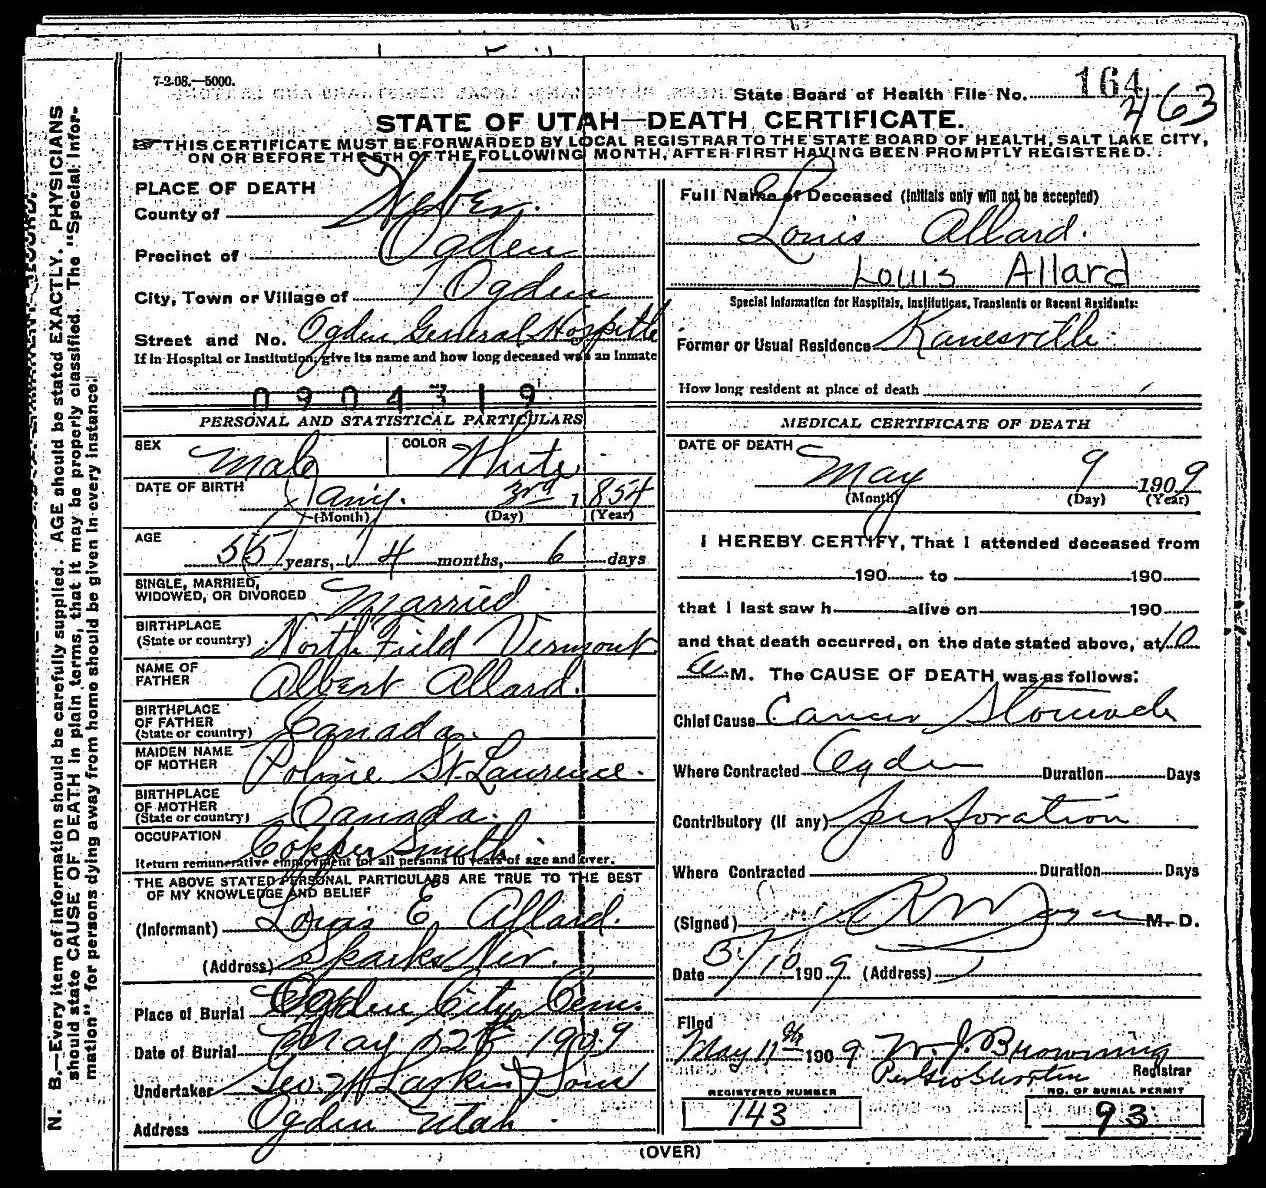 7-2-08.—5000.
State Board of Health File No. 164
463
STATE OF UTAH—DEATH CERTIFICATE.
THIS CERTIFICATE MUST BE FORWARDED BY LOCAL REGISTRAR TO THE STATE BOARD OF HEALTH, SALT LAKE CITY,
ON OR BEFORE THE 5TH OF THE FOLLOWING MONTH, AFTER FIRST HAVING BEEN PROMPTLY REGISTERED.
PLACE OF DEATH
County of Weber.
Precinct of Ogden
City, Town or Village of Ogden
Street and No. Ogden General Hospital
If in Hospital or Institution, give its name and how long deceased was an Inmate
0904319
PERSONAL AND STATISTICAL PARTICULARS
SEX Male COLOR White
DATE OF BIRTH Jany. 3rd 1854
(Month) (Day) (Year)
AGE 55 years, 4 months, 6 days
SINGLE, MARRIED,
WIDOWED, OR DIVORCED Married
BIRTHPLACE
(State or country) North Field Vermont
NAME OF
FATHER Albert Allard.
BIRTHPLACE
OF FATHER
(State or country) Canada.
MAIDEN NAME
OF MOTHER St. Lawrence.
BIRTHPLACE
OF MOTHER
(State or country) Canada.
OCCUPATION Copper Smith
Return remunerative employment for all persons 10 years of age and over.
THE ABOVE STATED PERSONAL PARTICULARS ARE TRUE TO THE BEST
OF MY KNOWLEDGE AND BELIEF
(Informant) Louis E. Allard.
(Address) Sparks Nev.
Place of Burial Ogden City Cem.
Date of Burial May 12th 1909
Undertaker Geo. W Larkin & Sons
Address Ogden Utah.
Full Name of Deceased (Initials only will not be accepted)
Louis Allard.
Louis Allard
Special Information for Hospitals, Institutions, Transients or Recent Residents:
Former or Usual Residence Kanesville
How long resident at place of death
MEDICAL CERTIFICATE OF DEATH
DATE OF DEATH
May 9 1909
(Month) (Day) (Year)
I HEREBY CERTIFY, That I attended deceased from
190 to 190
that I last saw h alive on 190
and that death occurred, on the date stated above, at 10
a M. The CAUSE OF DEATH was as follows:
Chief Cause Cancer Stomach
Where Contracted Ogden Duration Days
Contributory (if any) perforation
Where Contracted Duration Days
(Signed) M. D.
Date 5/10 1909 (Address)
Filed
May 11th 1909 W. J. Browning
Registrar
REGISTERED NUMBER
143
NO. OF BURIAL PERMIT
93
(OVER)
N. B.—Every item of information should be carefully supplied. AGE should be stated EXACTLY. PHYSICIANS
should state CAUSE OF DEATH in plain terms, that it may be properly classified. The "Special Infor-
mation" for persons dying away from home should be given in every instance.